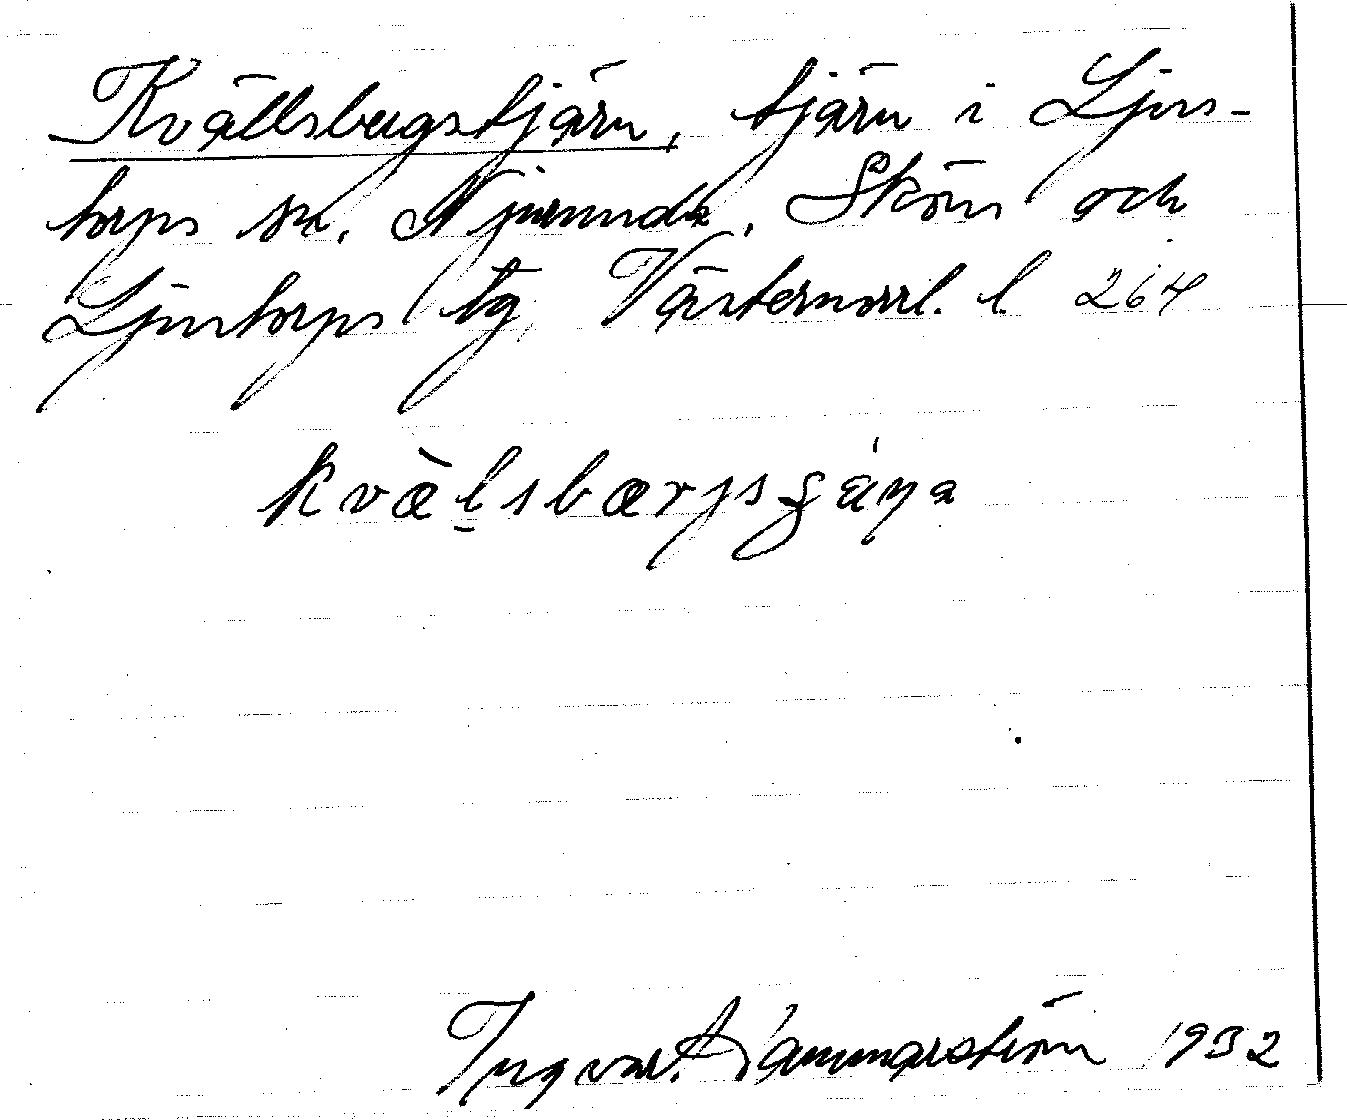 Kvällsbergstjärn, tjärn i Ljus-
torps sn. Njurunda, Sköns och
Ljustorps tg, Västernorrl. l. 264
kvæ̀lsbærjs
Ingvar Hammarström 1932